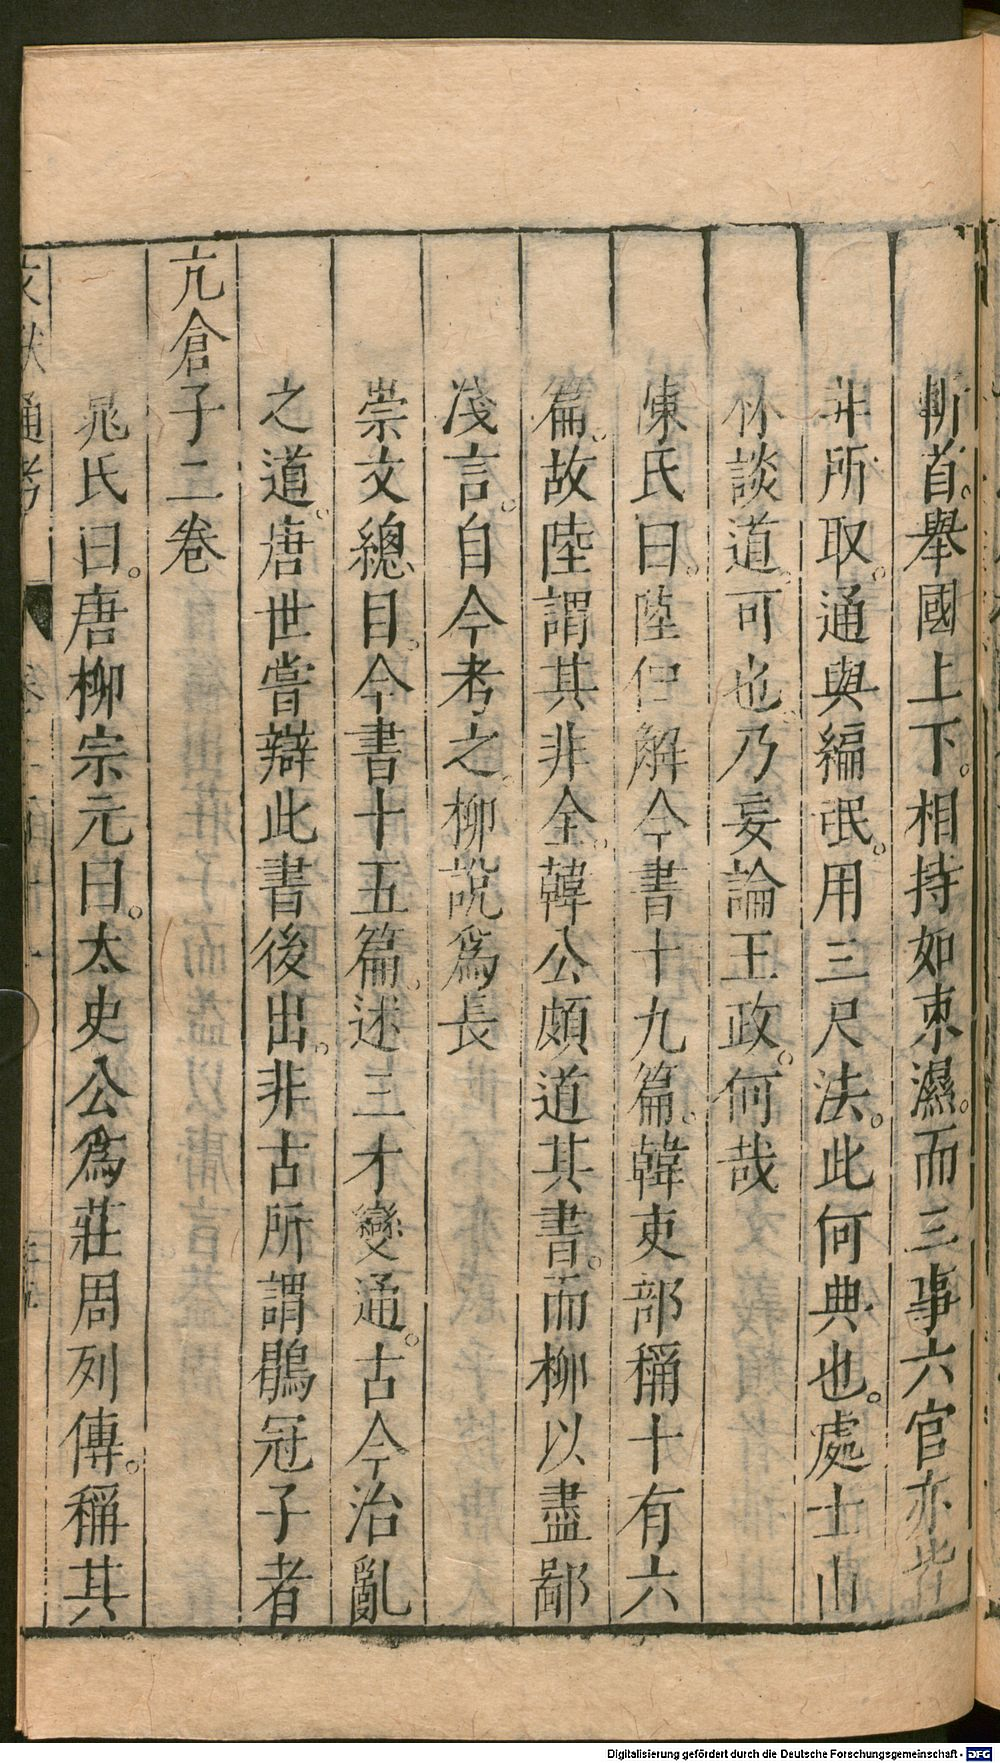 斬首。舉國上下。相持如束濕。而三事六官亦皆
非所取。通與編氓。用三尺法。此何典也。處士山
林談道。可也。乃妄論王政。何哉
陳氏曰。陸佃解今書十九篇。韓吏部稱十有六
篇。故陸謂其非全。韓公頗道其書。而柳以盡鄙
淺言。自今考之。柳說為長
崇文總目。今書十五篇。述三才變通。古今治亂
之道。唐世嘗辯此書後出。非古所謂鶡冠子者
亢倉子二卷
晁氏曰。唐柳宗元曰。太史公為莊周列傳。稱其
文獻通考
Digitalisierung gefördert durch die Deutsche Forschungsgemeinschaft - DFG